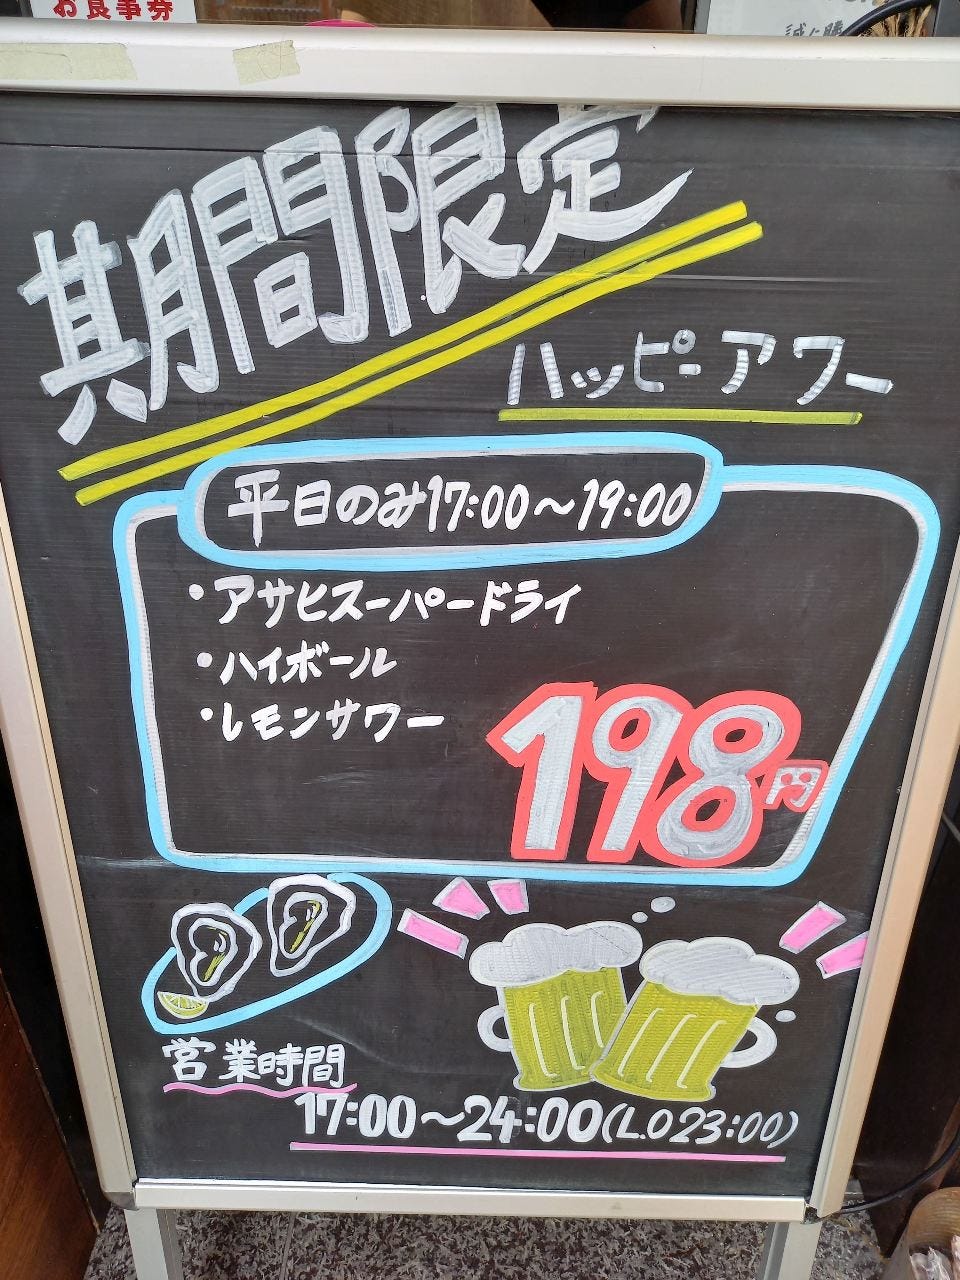 お食事券
期間限定
ハッピーアワー
平日のみ17:00～19:00
・アサヒスーパードライ
・ハイボール
・レモンサワー
198円
営業時間
17:00～24:00(L.O 23:00)